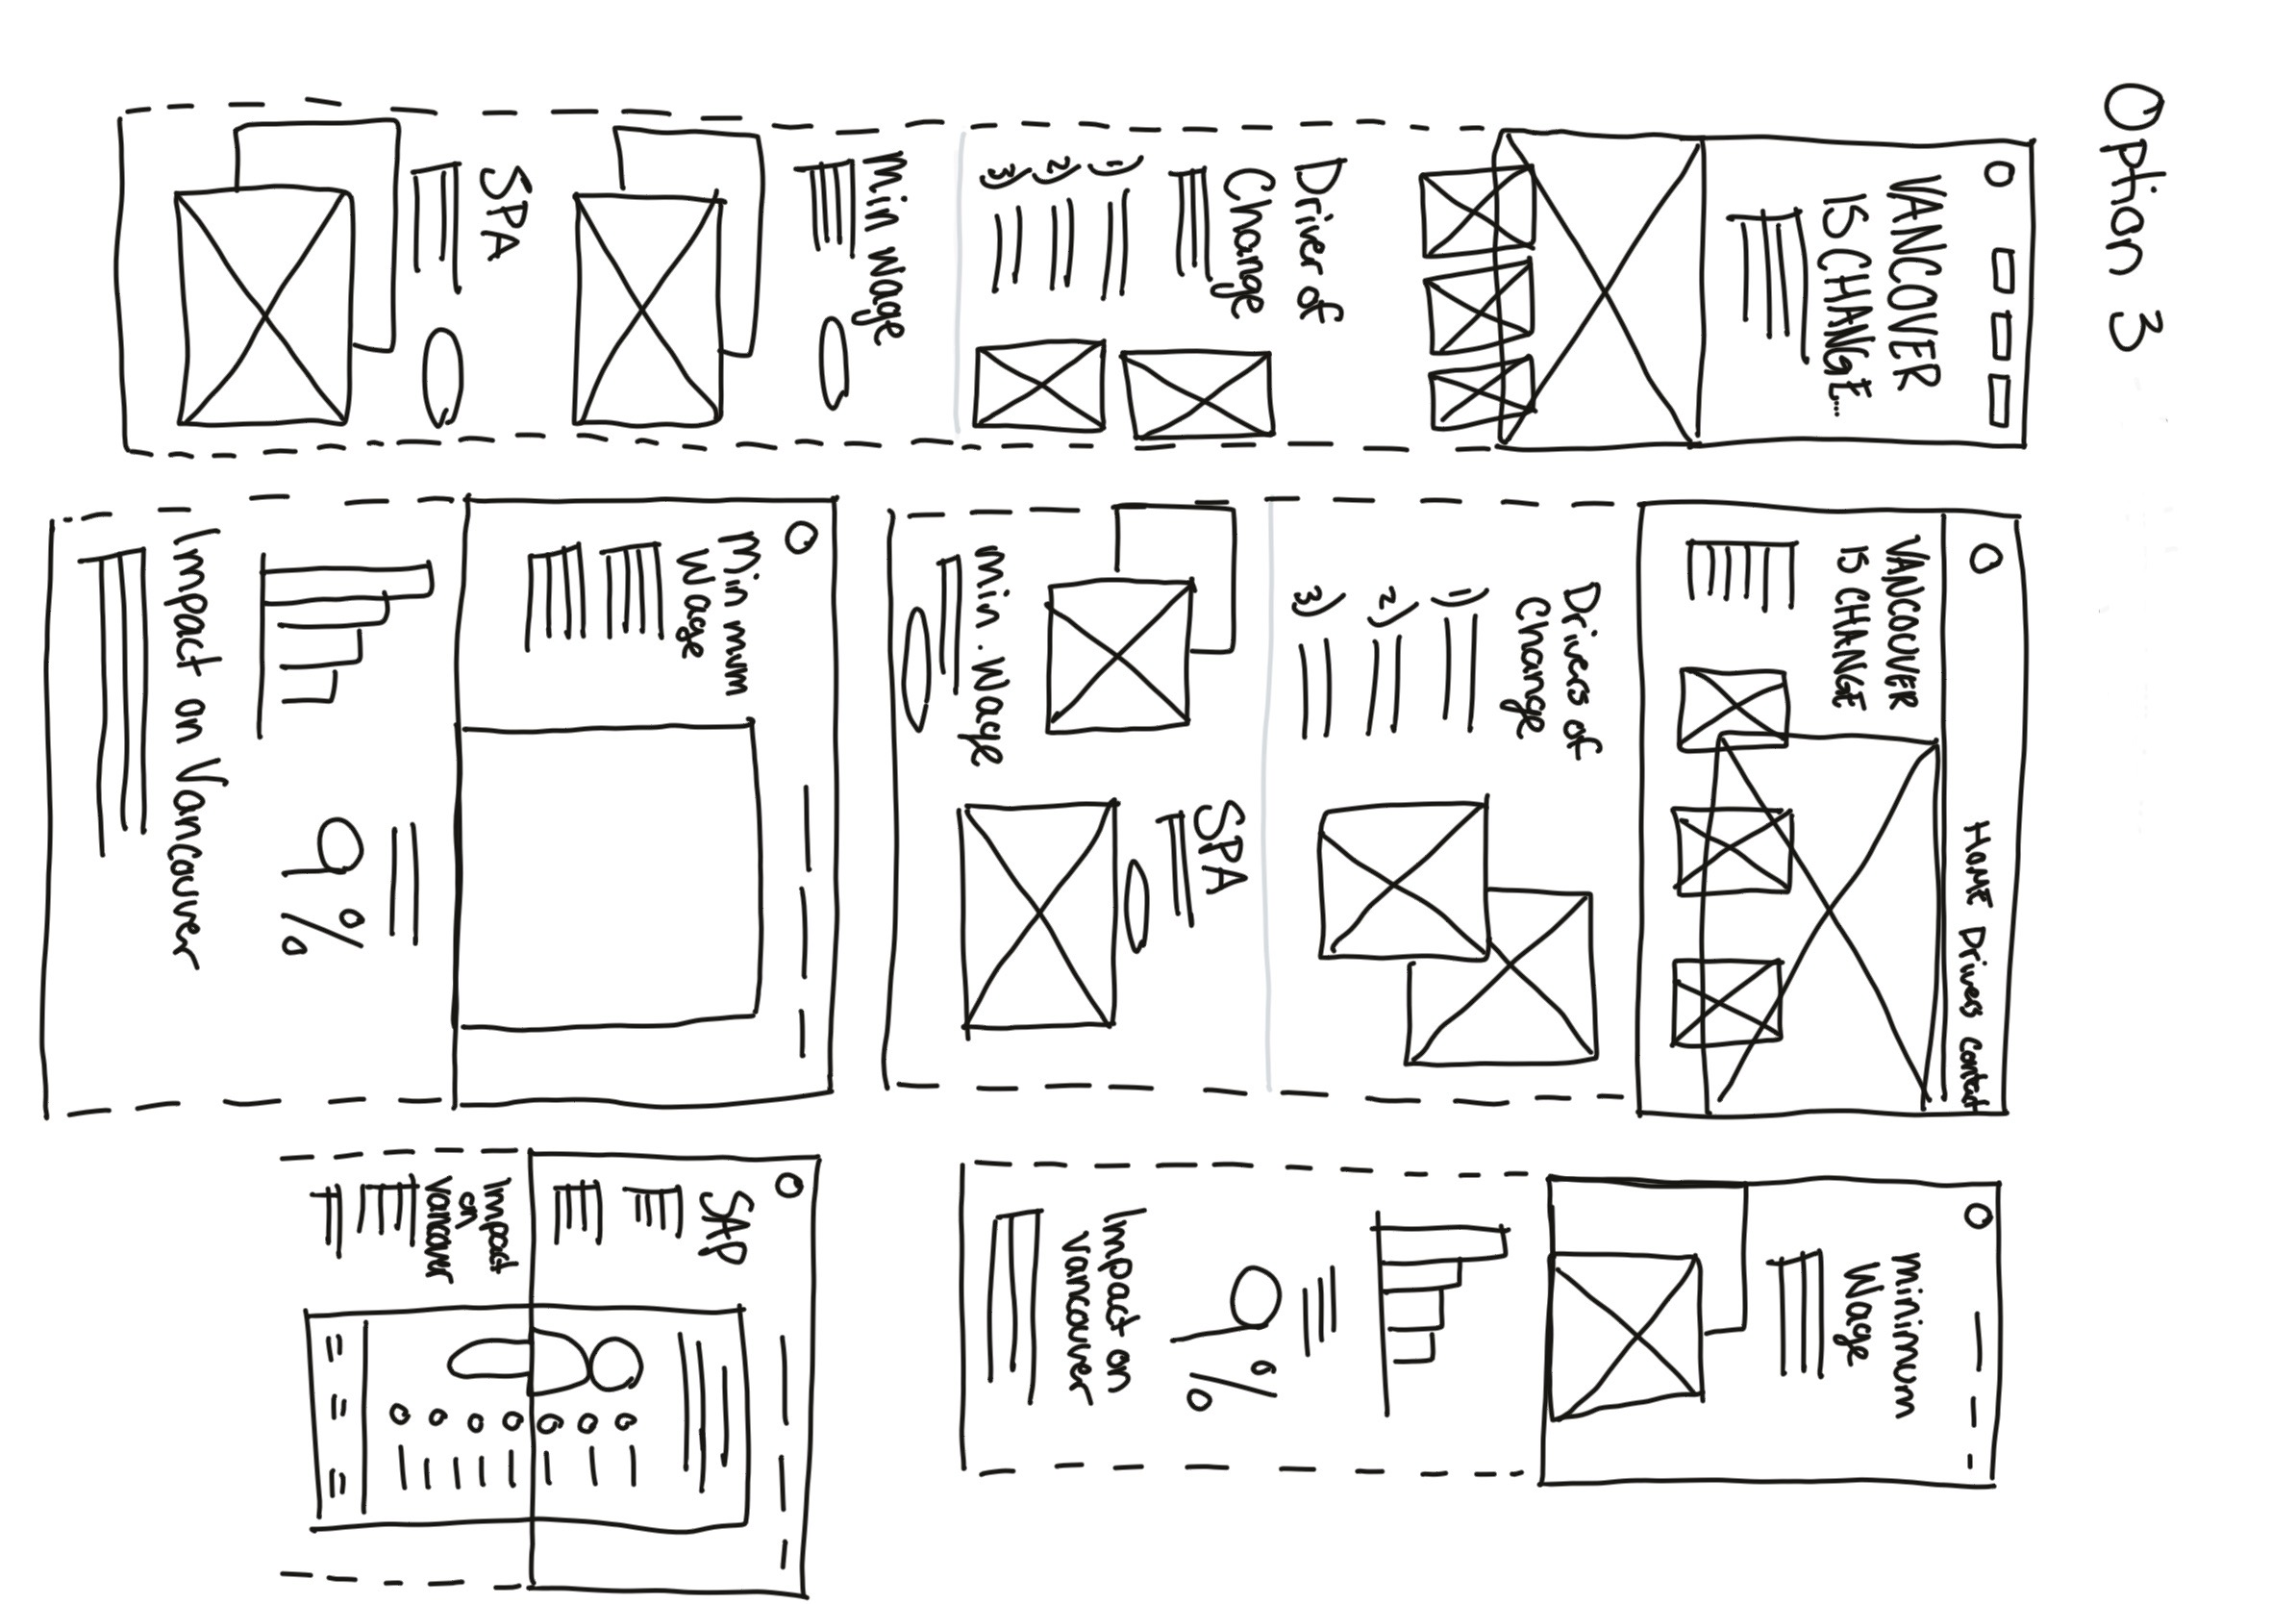 Option 3
VANCOVER
IS CHANGE...
Driver of
Change
1)
2)
3)
Min wage
SPA
HOME Drivers Contact
VANCOUVER
IS CHANGE
Drivers of
Change
1)
2)
3)
SPA
Min. Wage
Minimum
Wage
9%
Impact on
Vancouver
Min mum
Wage
9%
Impact on Vancouver
SAP
Impact
on
Vancouver